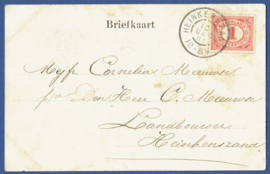 Briefkaart
HEINKE
1
Mejfr Cornelia Meeuwse
p/a Den Heer C. Meeuwse
Landbouwer
Heinkenszand